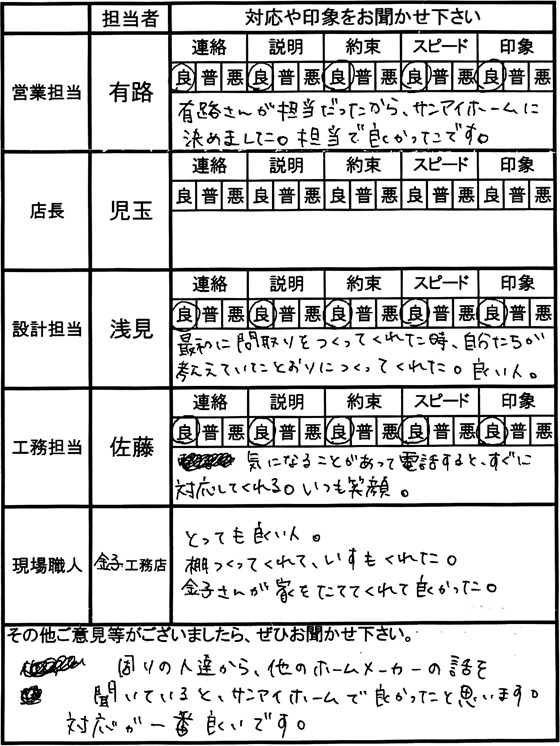 担当者 対応や印象をお聞かせ下さい
営業担当 有路
連絡 説明 約束 スピード 印象
良 普 悪 良 普 悪 良 普 悪 良 普 悪 良 普 悪
有路さんが担当だったから、サンアイホームに
決めました。担当で良かったです。
店長 児玉
連絡 説明 約束 スピード 印象
良 普 悪 良 普 悪 良 普 悪 良 普 悪 良 普 悪
設計担当 浅見
連絡 説明 約束 スピード 印象
良 普 悪 良 普 悪 良 普 悪 良 普 悪 良 普 悪
最初に間取りをつくってくれた時、自分たちが
考えていたとおりにつくってくれた。良い人。
工務担当 佐藤
連絡 説明 約束 スピード 印象
良 普 悪 良 普 悪 良 普 悪 良 普 悪 良 普 悪
気になることがあって電話すると、すぐに
対応してくれる。いつも笑顔。
現場職人 金子工務店
とっても良い人。
棚つくってくれて、いすもくれた。
金子さんが家をたててくれて良かった。
その他ご意見等がございましたら、ぜひお聞かせ下さい。
周りの人達から、他のホームメーカーの話を
聞いていると、サンアイホームで良かったと思います。
対応が一番良いです。